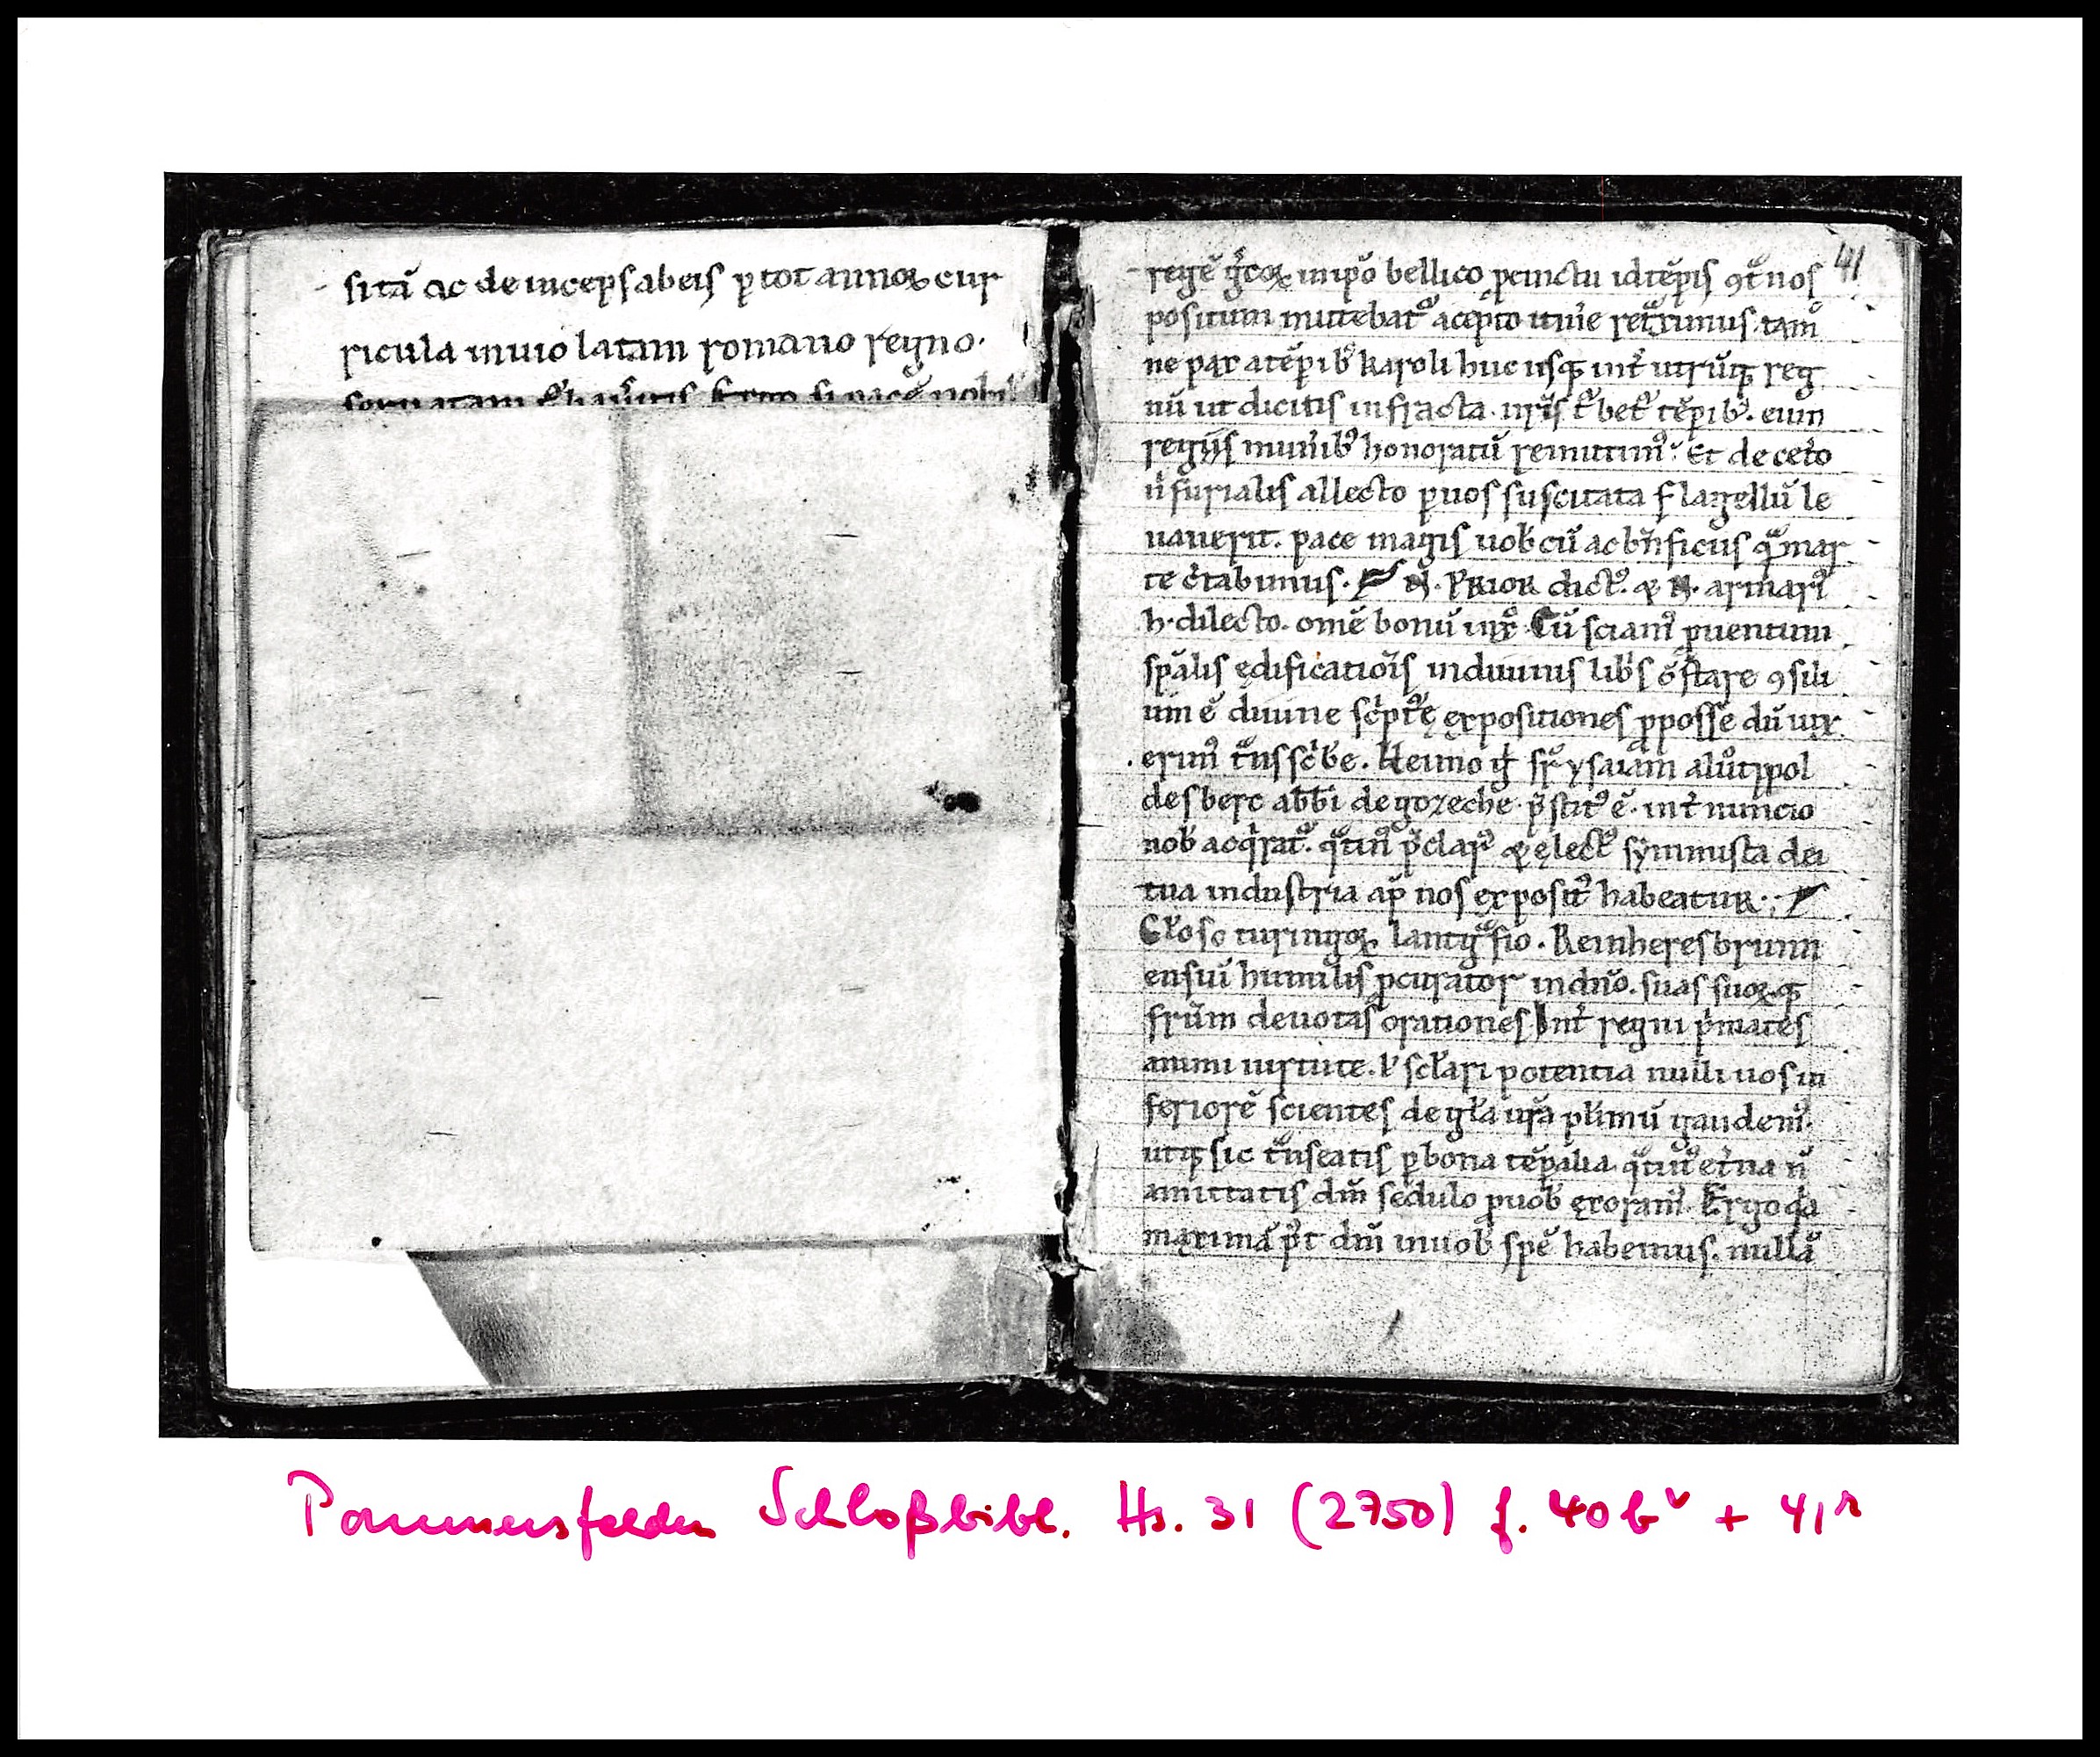 sitā ac deincepſ abeiſ ꝑ tot annoꝝ cur
ricula inuiolatam romano regno.
41
regē gͬcoꝝ inipō bellico ꝓcinctu id tēpiſ ꝯtͣ noſ
poſitum mittebat᷒
ne pax a tēpib᷒ karoli huc uſqꝫ int̄ utrūqꝫ reg
nū ut dicitis infracta. eum
regiiſ munīb᷒ honoratū remittim᷒. Et de cet̄o
furialis allecto ꝑ uoſ ſuſcitata flagellū le
uauerit. pace magiſ uob̄cū ac bn̄ficiiſ qͣ mar
te c̄tabimus. N. PRIOR dict᷒. & N. armari᷒
h. dilecto. omē bonū in xͦ. Cū ſciam᷒ ꝓuentum
ſpālis ędificatiōis in diuiniſ libͥſ ꝯſtare ꝯſili
um ē diuine ſcͥpt᷑ę expoſitiones ꝓ poſſe dū uix
erim᷒ tͣnſſcͥbe. Heimo gͥ ſrͣ yſaiam
deſberc abb̄i de gozeche. p̄ſtit᷒ ē. int̄ nuncio
nob̄ acqͥrat᷑. qͣtin᷒ p̄clar᷒ & ęlect᷒ ſymmiſta dei
tua induſtria ap̄ nos expoſit᷒ habeatur.
Gl̄oſo turingoꝝ lantgͣfio. Reinhereſbrunn
enſiū humiliſ ꝓcurator in dn̄o. ſuas ſuoꝝqꝫ
frūm deuotaſ orationeſ. Int̄ regni pͥmateſ
animi uirtute. l̄ ſcl̄ari potentia nulli uoſ in
feriorē ſcienteſ de gl̄a ur̄a plͥmū gaudem᷒.
utqꝫ ſic tͣnſeatiſ ꝑ bona tēpalia. qͣtin᷒ et̄na n̄
amittatiſ dm̄ ſedulo ꝓ uob̄ exoram᷒. Ergo qͥa
maximā p᷒t dm̄ in uob̄ ſpē habemuſ. nullā
Pommersfelden Schloßbibl. Hs. 31 (2750) f. 40bᵛ + 41ʳ